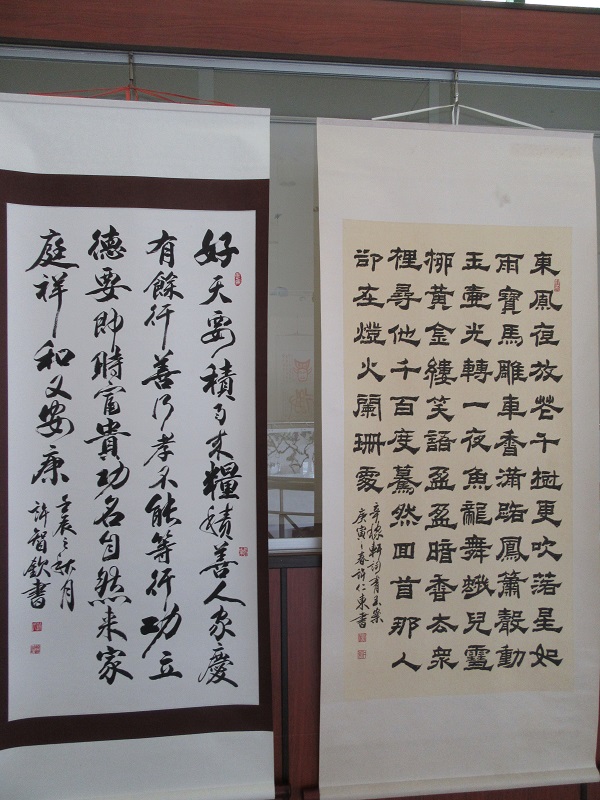 東風夜放花千樹更吹落星如
雨寶馬雕車香滿路鳳簫聲動
玉壺光轉一夜魚龍舞蛾兒雪
柳黃金縷笑語盈盈暗香去眾
裡尋他千百度驀然回首那人
卻在燈火闌珊處
辛稼軒詞青玉案
庚寅之春許仁東書
好天要積雨來糧積善人家慶
有餘行善行孝不能等行功立
德要即時富貴功名自然來家
庭祥和又安康
壬辰之秋月
許智欽書